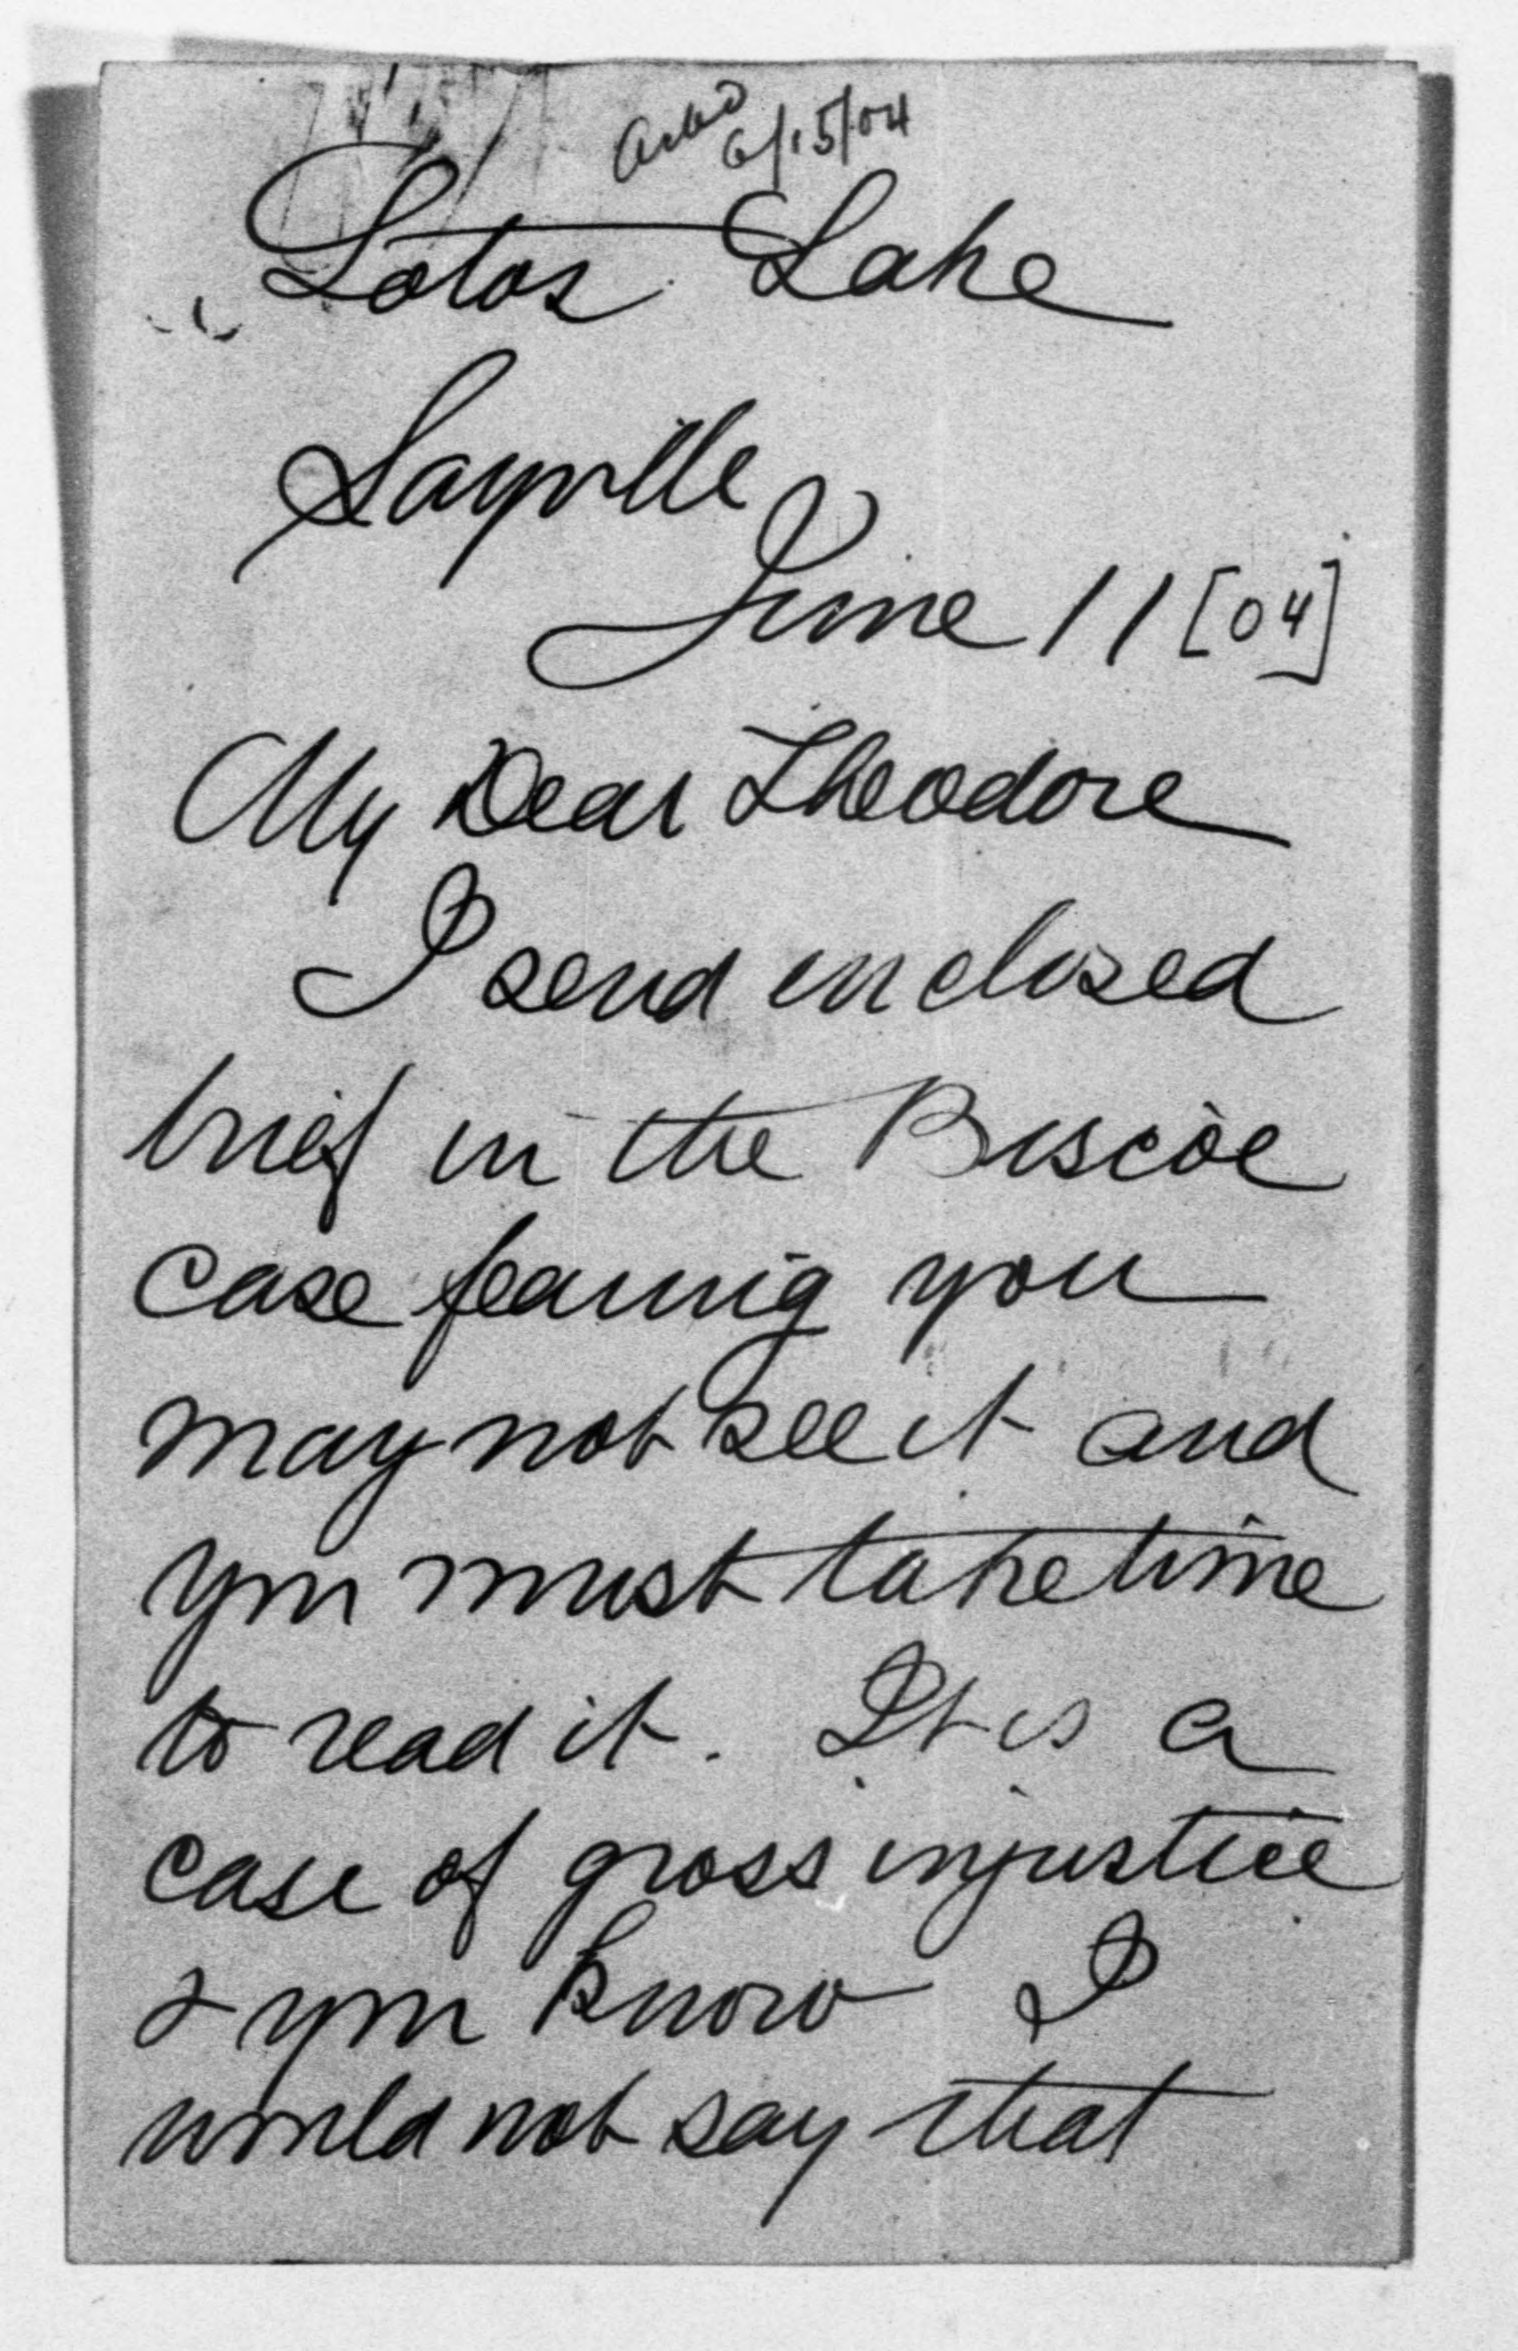 Ackd
6/15/04
Lotos Lake
Sayville
June 11 [04]
My Dear Theodore
I send enclosed
brief in the Biscoe
case fearing you
may not see it and
you must take time
to read it. It is a
case of gross injustice
& you know I
would not say that